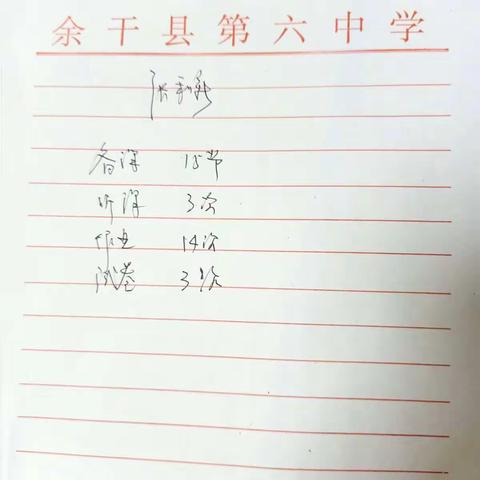 余干县第六中学
张
备课 15节
听课 3次
作业 14次
试卷 3份